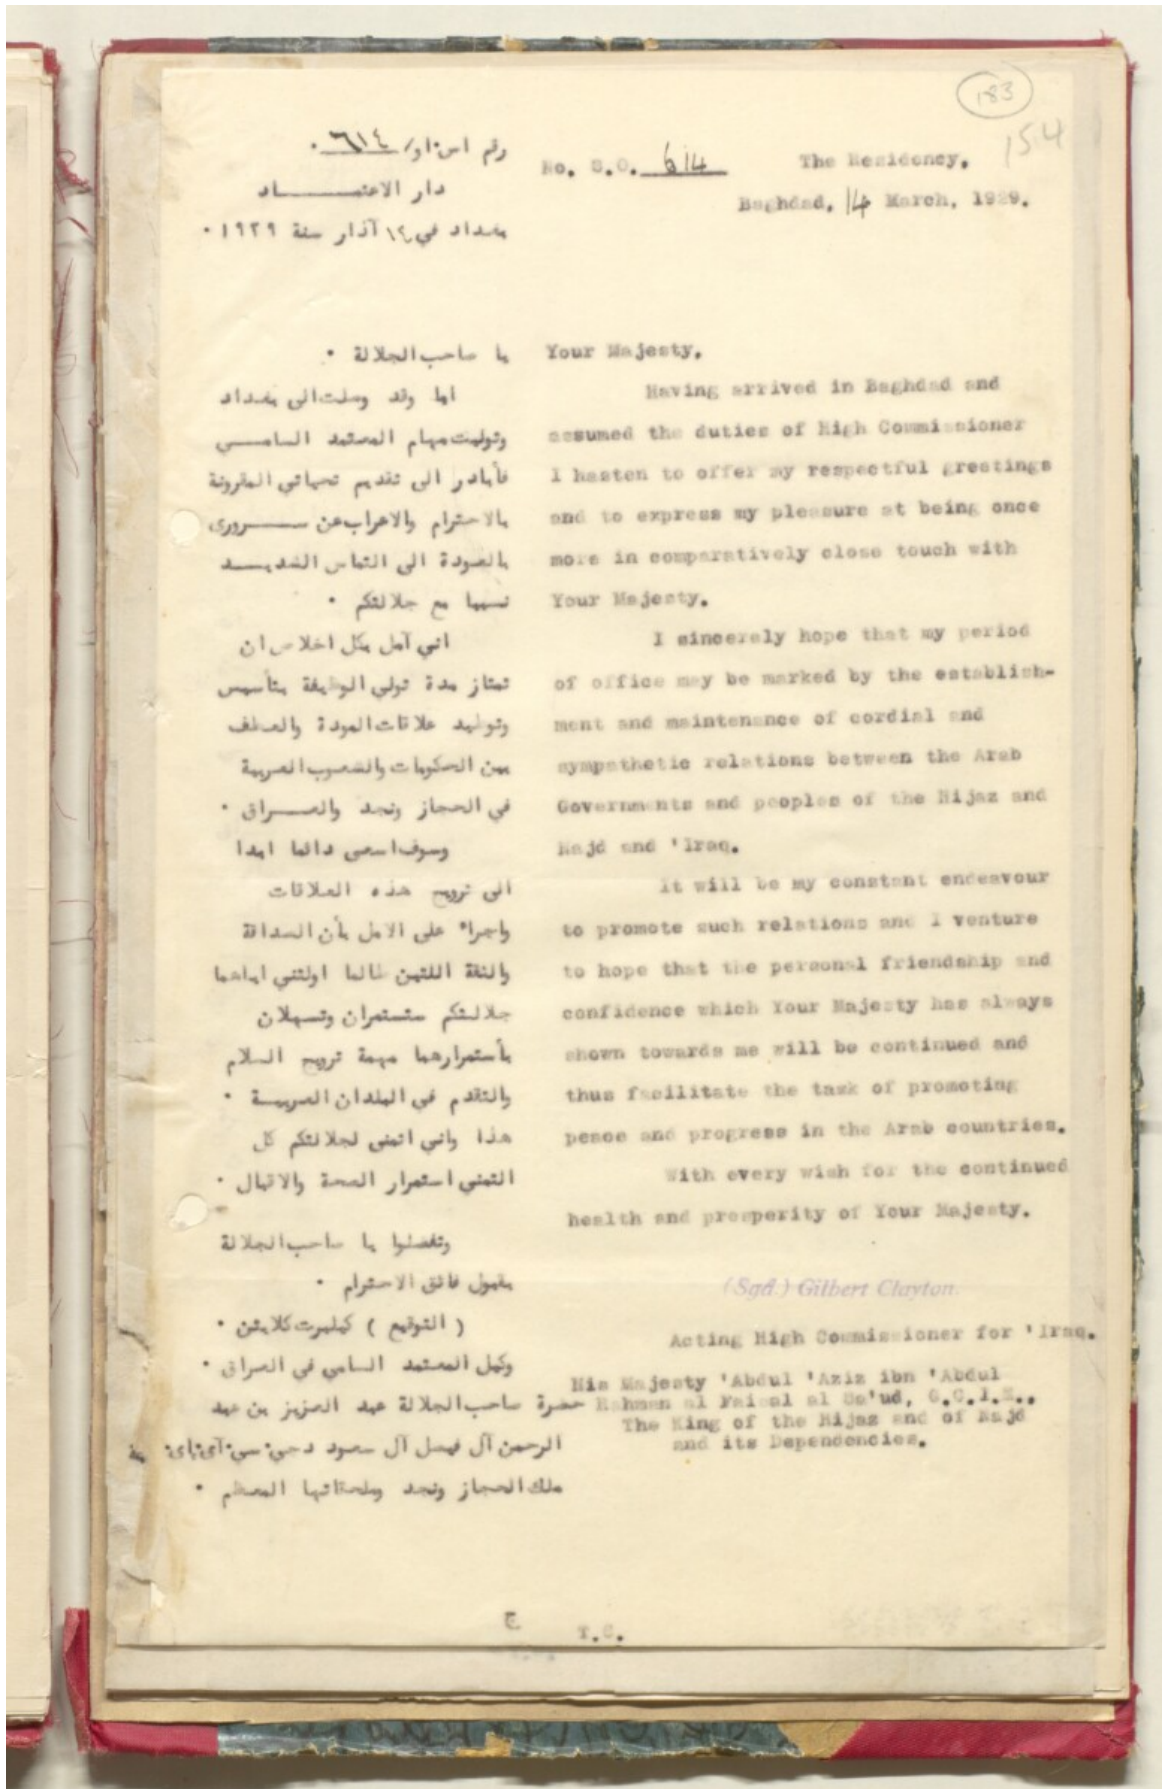 183
154
رقم اس٠او/ ٦١٤ ٠
دار الاعتمـــــــاد
بغداد في ١٤ آذار سنة ١٩٢٩ ٠
No. S.O. 614
The Residency.
Baghdad, 14 March, 1929.
يا صاحب الجلالة ٠
اما وقد وصلت الى بغداد
وتوليت مهام المعتمد السامــي
فأبادر الى تقديم تحياتي المقرونة
بالاحترام والاعراب عن ســـروري
بالعودة الى التماس الشديـــد
نسبيا مع جلالتكم ٠
اني آمل بكل اخلاص ان
تمتاز مدة تولي الوظيفة بتأسيس
وتوطيد علاقات المودة والعطف
بين الحكومات والشعوب العربية
في الحجاز ونجد والعـــراق ٠
وسوف اسعى دائما ابدا
الى ترويج هذه العلاقات
واجراء على الامل بأن الصداقة
والثقة اللتين طالما اولتني اياهما
جلالتكم ستستمران وتسهلان
بأستمرارهما مهمة ترويج السلام
والتقدم في البلدان العربيــة ٠
هذا واني اتمنى لجلالتكم كل
التمني استمرار الصحة والاقبال ٠
وتفضلوا يا صاحب الجلالة
بقبول فائق الاحترام ٠
( التوقيع ) كيلبرت كلايتن ٠
وكيل المعتمد السامي في العراق ٠
حضرة صاحب الجلالة عبد العزيز بن عبد
الرحمن آل فيصل آل سعود دجي٠سي٠آي٠اي٠
ملك الحجاز ونجد وملحقاتها المعظم ٠
Your Majesty,
Having arrived in Baghdad and
assumed the duties of High Commissioner
I hasten to offer my respectful greetings
and to express my pleasure at being once
more in comparatively close touch with
Your Majesty.
I sincerely hope that my period
of office may be marked by the establish-
ment and maintenance of cordial and
sympathetic relations between the Arab
Governments and peoples of the Hijaz and
Najd and 'Iraq.
It will be my constant endeavour
to promote such relations and I venture
to hope that the personal friendship and
confidence which Your Majesty has always
shown towards me will be continued and
thus facilitate the task of promoting
peace and progress in the Arab countries.
With every wish for the continued
health and prosperity of Your Majesty.
(Sgd.) Gilbert Clayton.
Acting High Commissioner for 'Iraq.
His Majesty 'Abdul 'Aziz ibn 'Abdul
Rahman al Faisal al Sa'ud, G.C.I.E.,
The King of the Hijaz and of Najd
and its Dependencies.
ج
T.C.